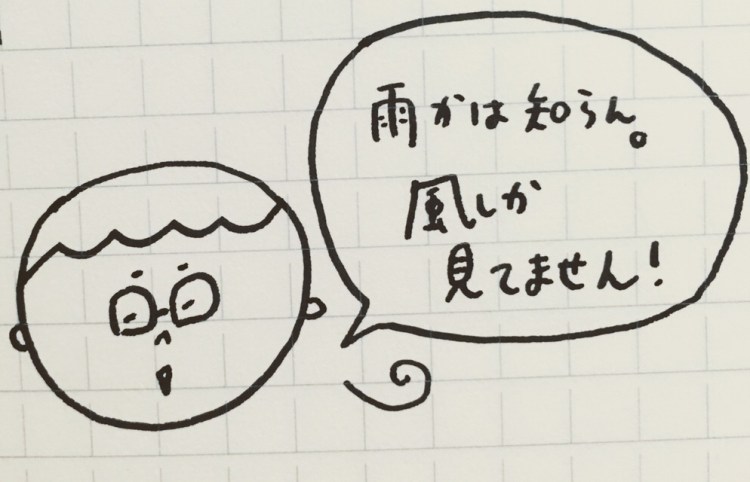 雨かは知らん。
風しか
見てません!